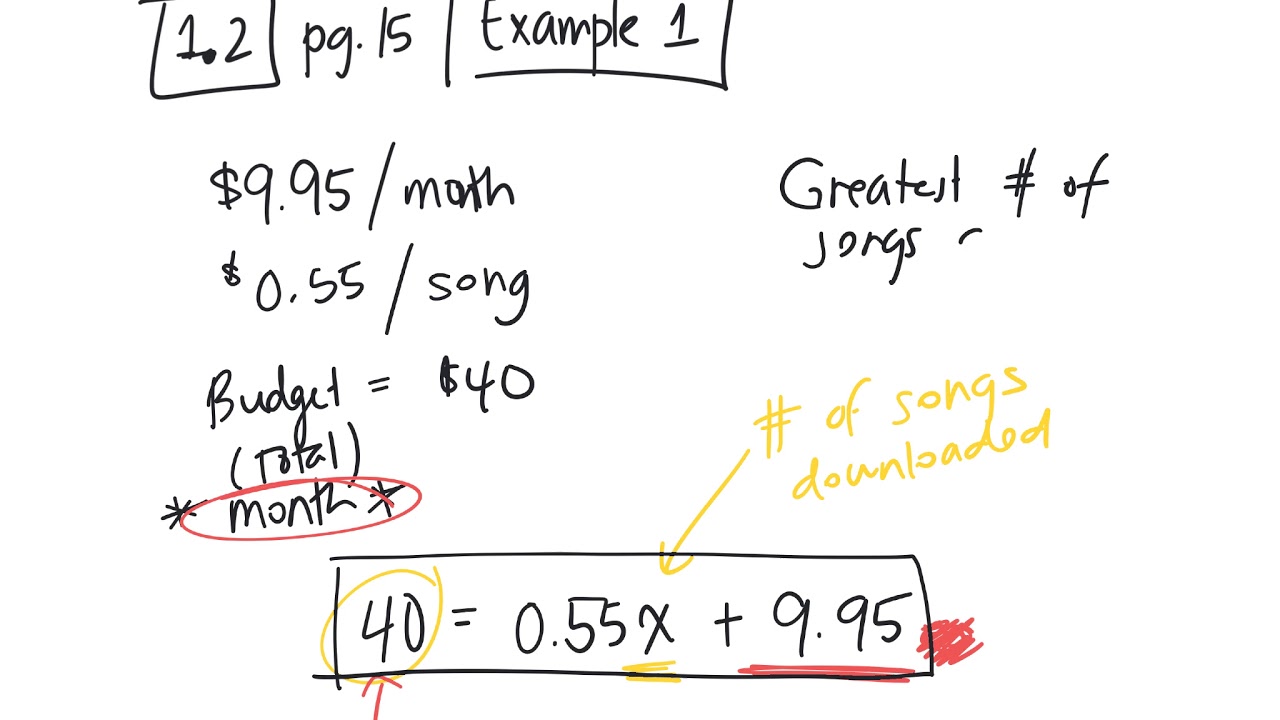 1.2 pg. 15 Example 1
$9.95 / month
$0.55 / song
Budget = $40
(Total)
* month *
Greatest # of
songs
# of songs
downloaded
40 = 0.55x + 9.95